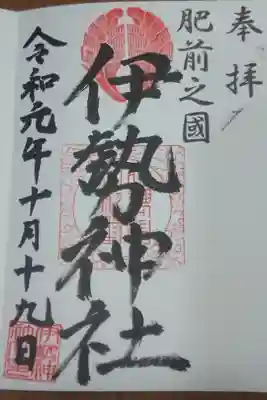 奉拝
肥前之國
伊勢神社
令和元年十月十九日